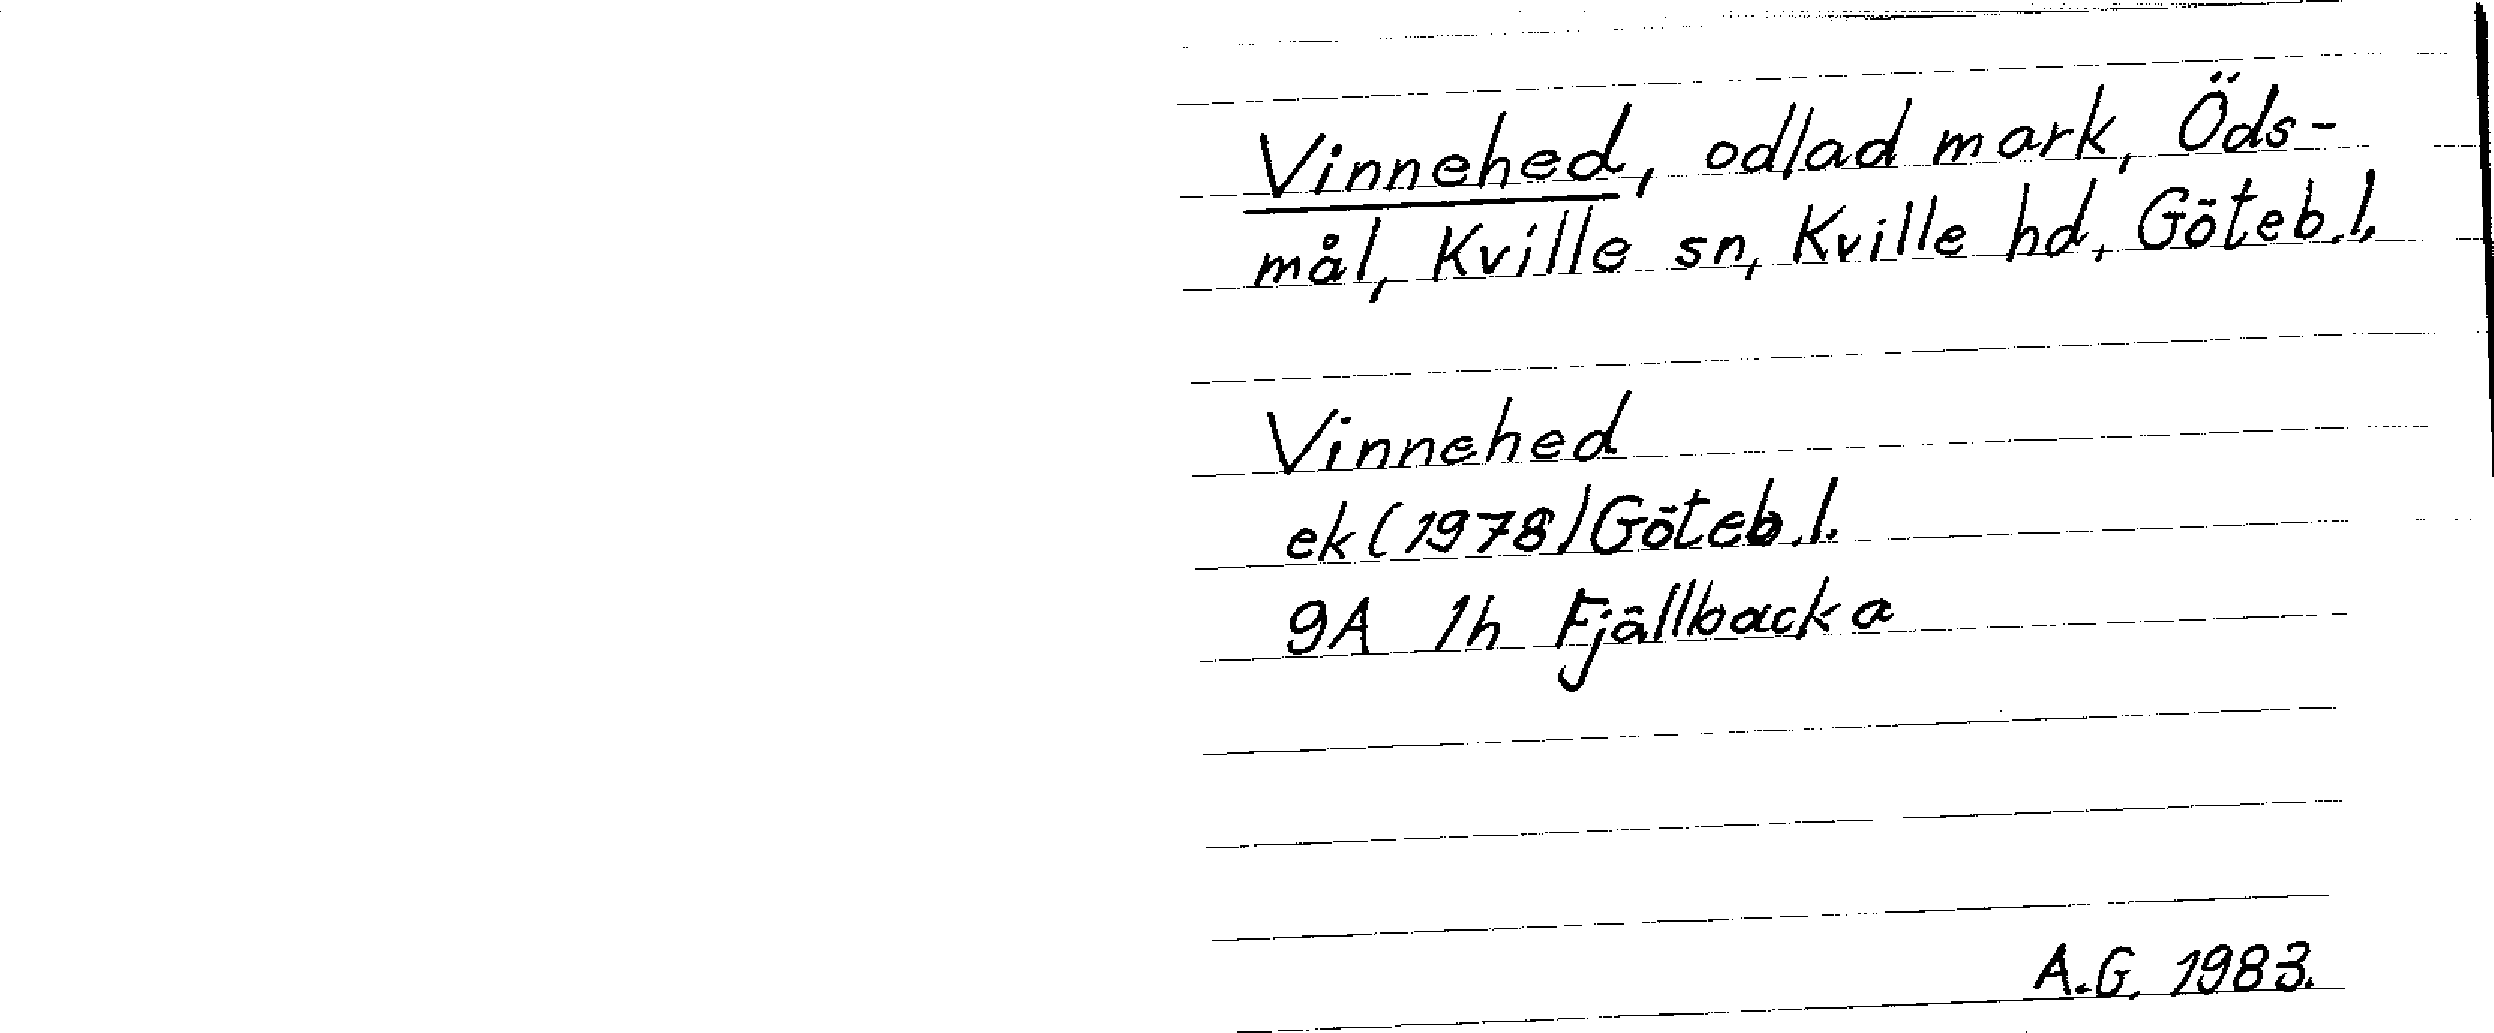 Vinnehed, odlad mark, Öds-
mål, Kville sn, Kville hd, Göteb.l.
Vinnehed
ek (1978) Göteb.l.
9A 1h Fjällbacka
A.G. 1983.